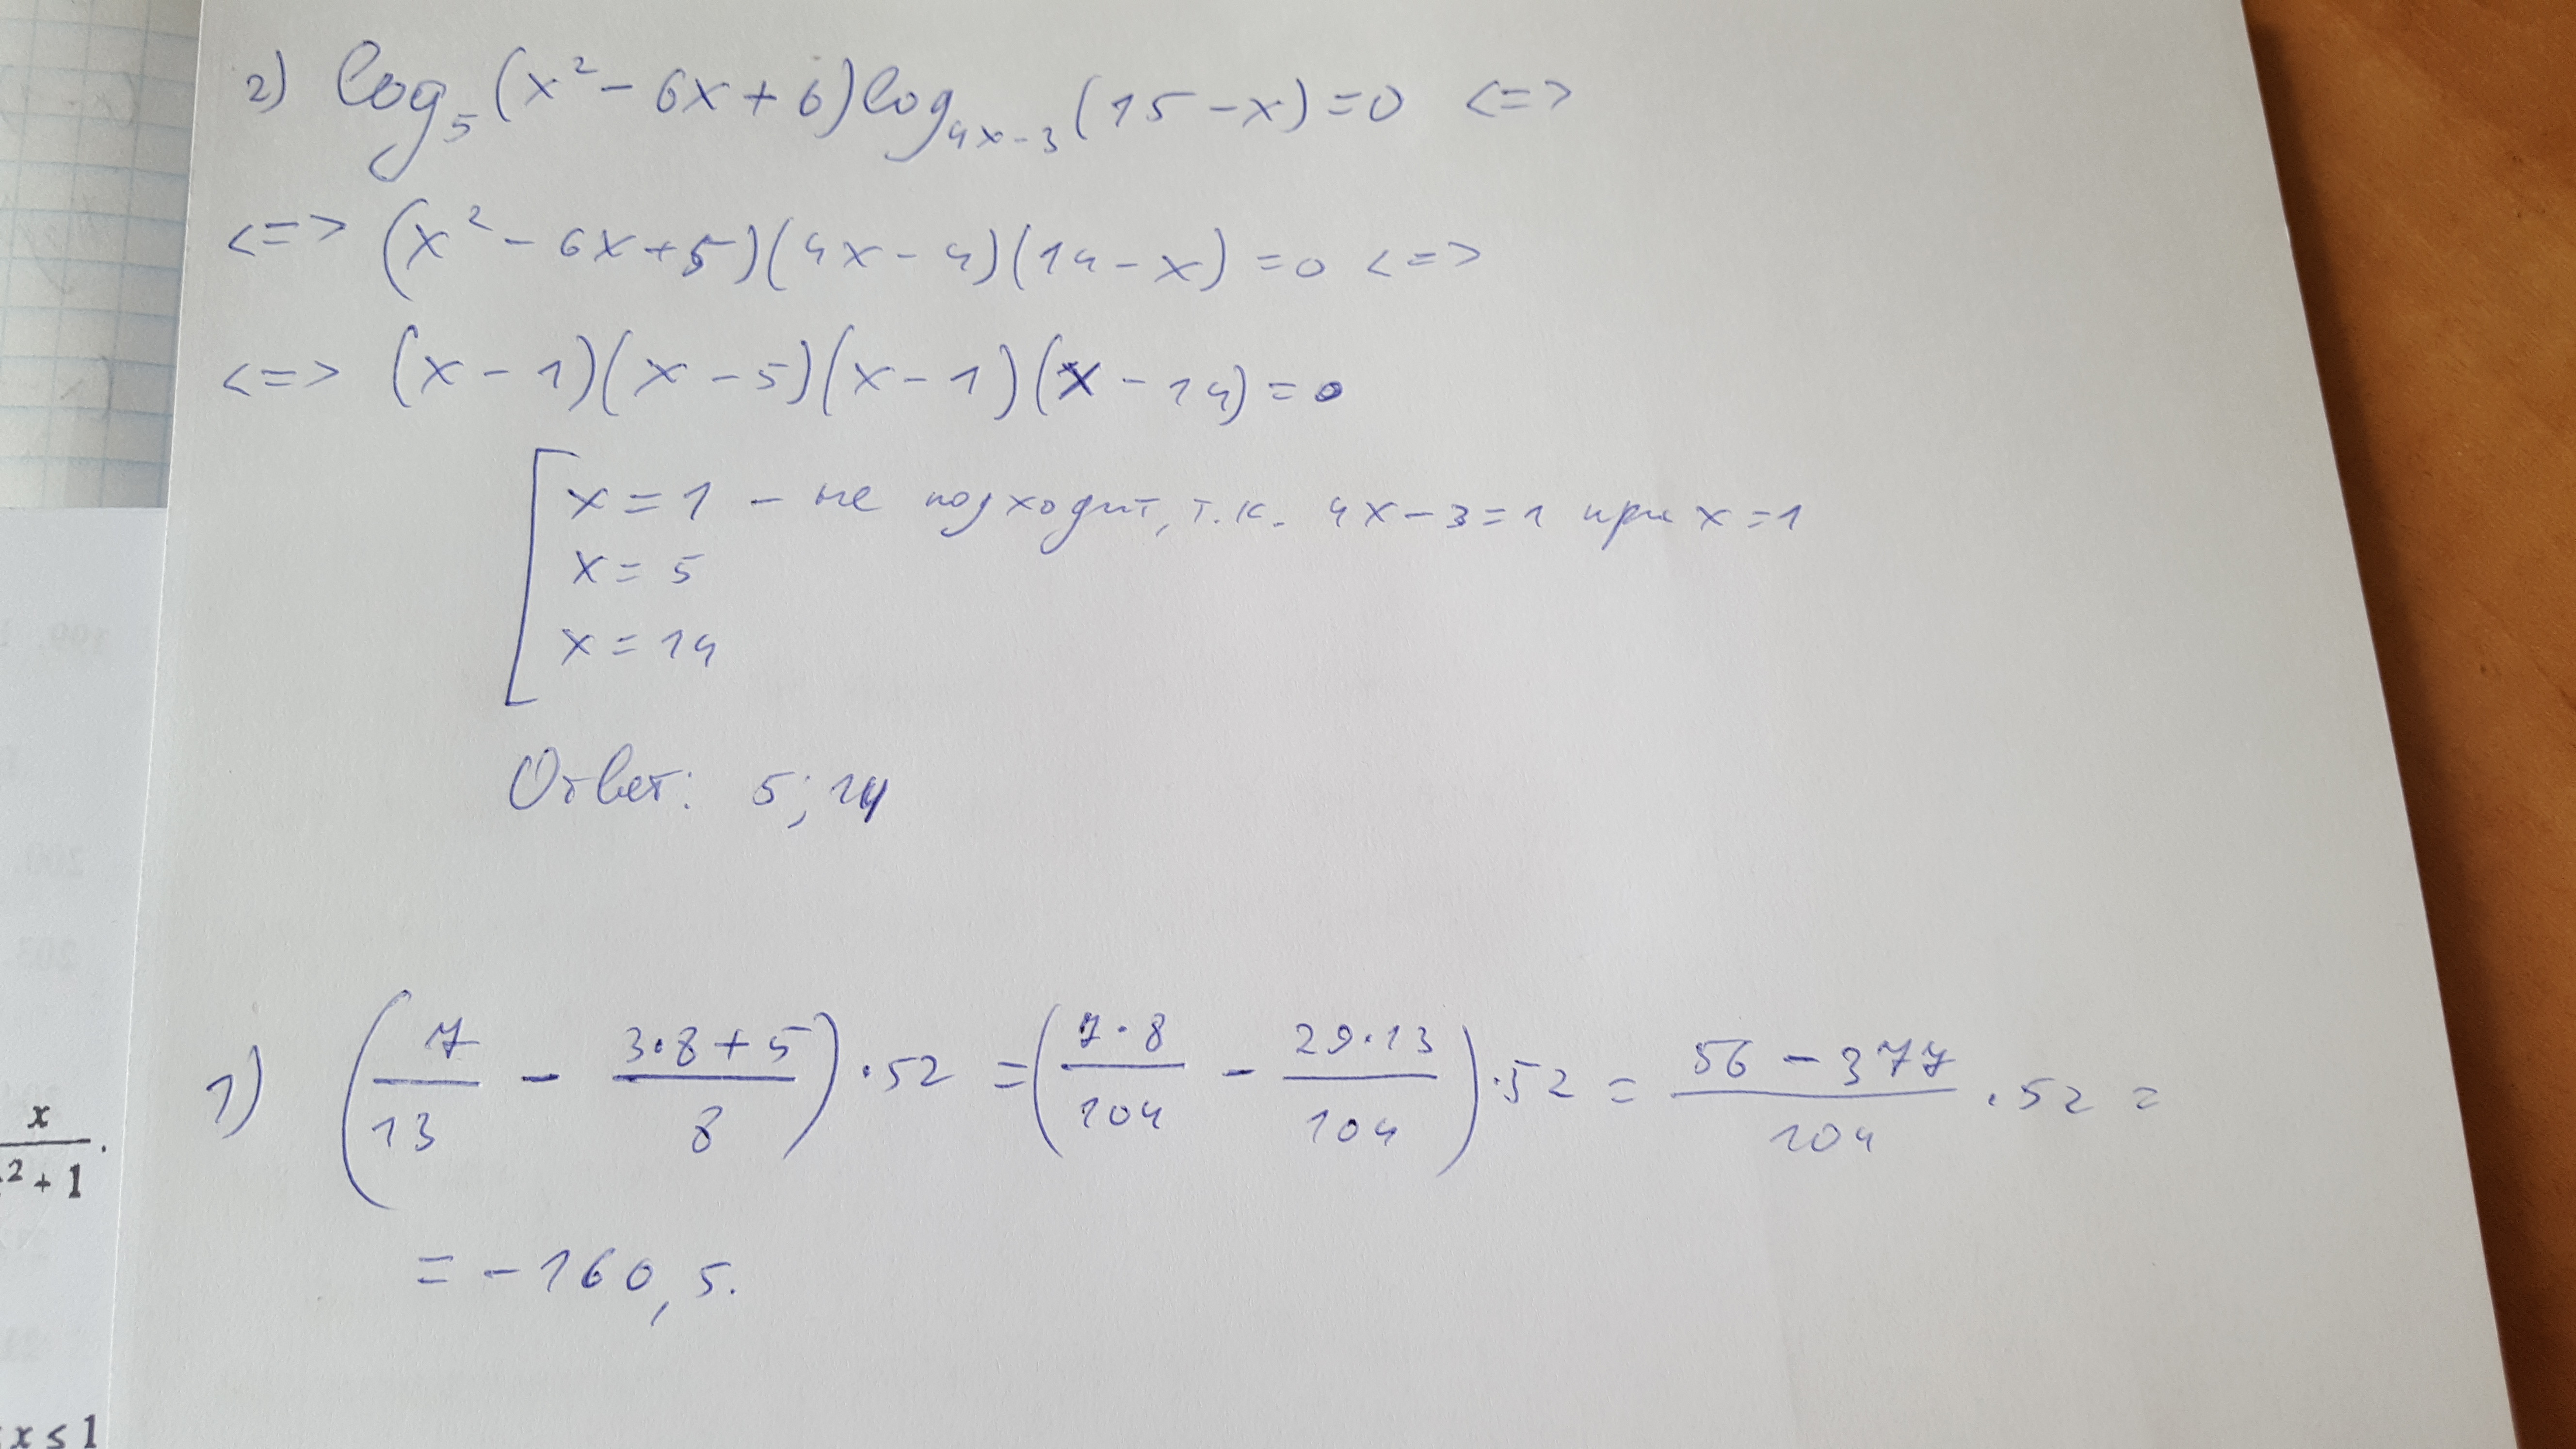 2) log₅(x² - 6x + 6) log₄ₓ₋₃(15 - x) = 0 <=>
<=> (x² - 6x + 5)(4x - 4)(14 - x) = 0 <=>
<=> (x - 1)(x - 5)(x - 1)(x - 14) = 0
x = 1 - не подходит, т.к. 4x - 3 = 1 при x = 1
x = 5
x = 14
Ответ: 5; 14
1) (7/13 - (3·8+5)/8) · 52 = (7·8/104 - 29·13/104) · 52 = (56 - 377)/104 · 52 =
= -160,5.
x
² + 1
.
x ≤ 1